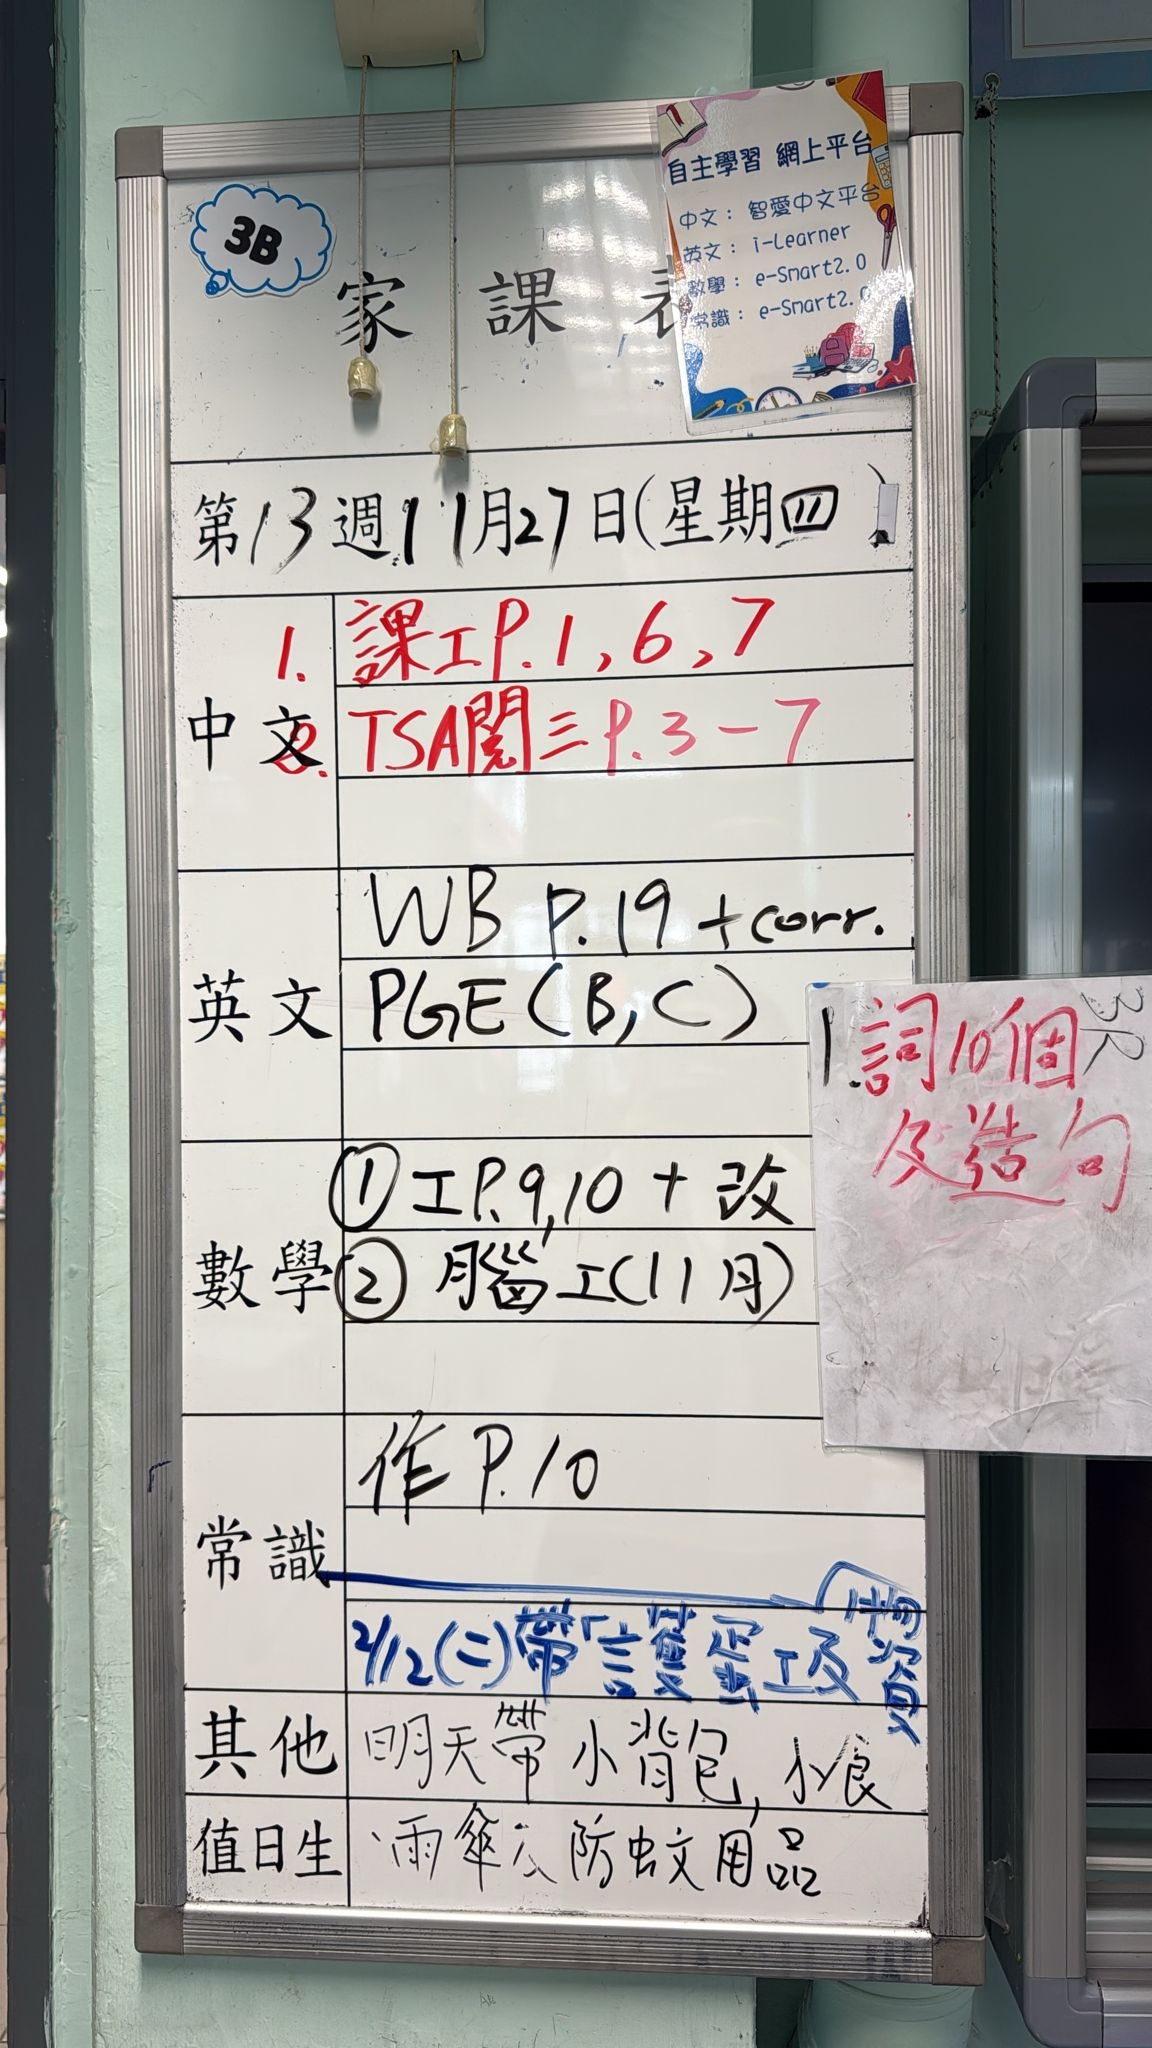 3B
自主學習 網上平台
中文： 智愛中文平台
英文： i-Learner
數學： e-Smart2.0
常識： e-Smart2.0
家 課 表
第13週11月27日(星期四)
中文
1. 課工P.1,6,7
2. TSA閱三P.3-7
英文
WB P.19 + corr.
PGE(B,C)
3R
1.詞10個
及造句
數學
① 工P.9,10 + 改
② 腦工(11月)
常識
作P.10
2/12(二)帶「護蛋工及物資
其他
明天帶小背包,小食
值日生
、雨傘及防蚊用品